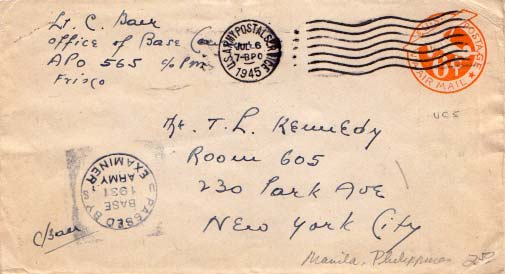 Lt. C. Baer
Office of Base Cen
APO 565 c/o PM
Frisco
U.S. ARMY POSTAL SERVICE
JUL 6
7-BPO
1945
POSTAGE
6¢
AIR MAIL
UC5
Mr. T. L. Kennedy
Room 605
230 Park Ave
New York City
PASSED BY
BASE
1931
ARMY
EXAMINER
CBaer
Manila, Philippines
350